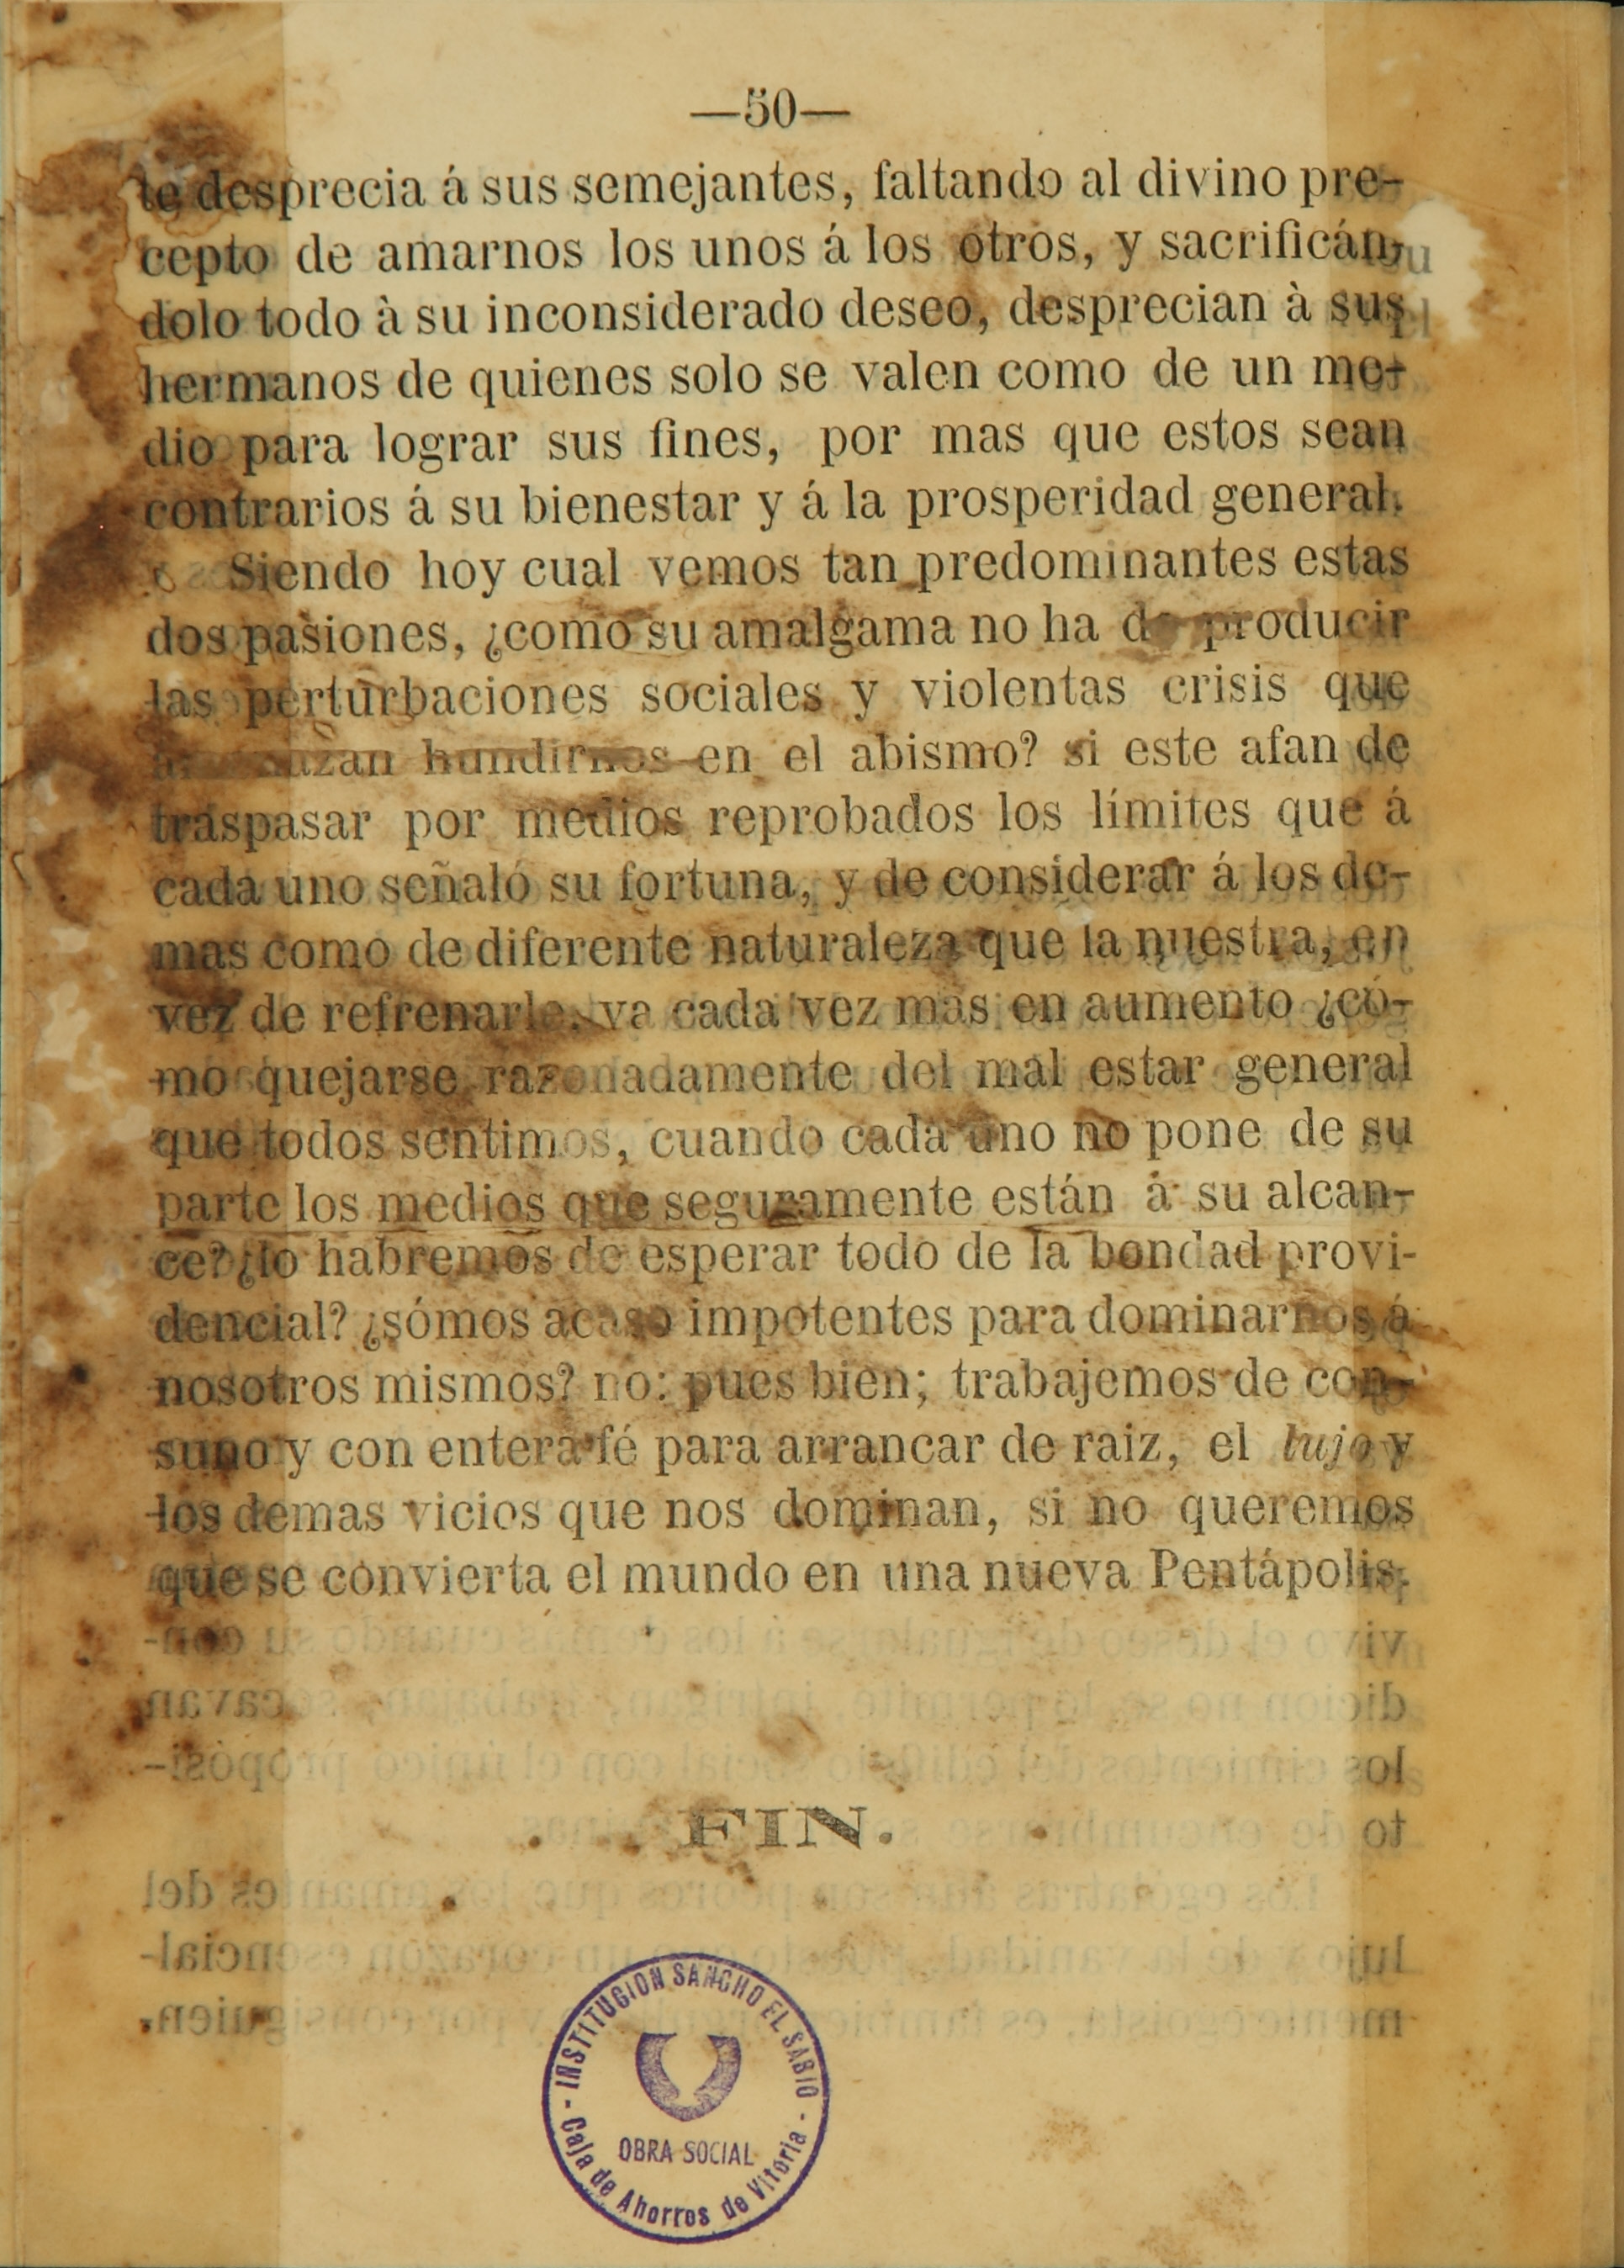 —50—
te desprecia á sus semejantes, faltando al divino pre-
cepto de amarnos los unos á los otros, y sacrificán-
dolo todo à su inconsiderado deseo, desprecian à sus
hermanos de quienes solo se valen como de un me-
dio para lograr sus fines, por mas que estos sean
contrarios á su bienestar y á la prosperidad general.
Siendo hoy cual vemos tan predominantes estas
dos pasiones, ¿como su amalgama no ha de producir
las perturbaciones sociales y violentas crisis que
hundirnos en el abismo? si este afan de
traspasar por medios reprobados los límites que á
cada uno señaló su fortuna, y de considerar á los de-
mas como de diferente naturaleza que la nuestra, en
vez de refrenarle, va cada vez mas en aumento ¿có-
mo quejarse razonadamente del mal estar general
que todos sentimos, cuando cada uno no pone de su
parte los medios que seguramente están à su alcan-
ce? ¿lo habremos de esperar todo de la bondad provi-
dencial? ¿sómos acaso impotentes para dominarnos á
nosotros mismos? no: pues bien; trabajemos de con-
suno y con entera fé para arrancar de raiz, el lujo y
los demas vicios que nos dominan, si no queremos
que se convierta el mundo en una nueva Pentápolis.
FIN.
INSTITUCION SANCHO EL SABIO
OBRA SOCIAL
Caja de Ahorros de Vitoria